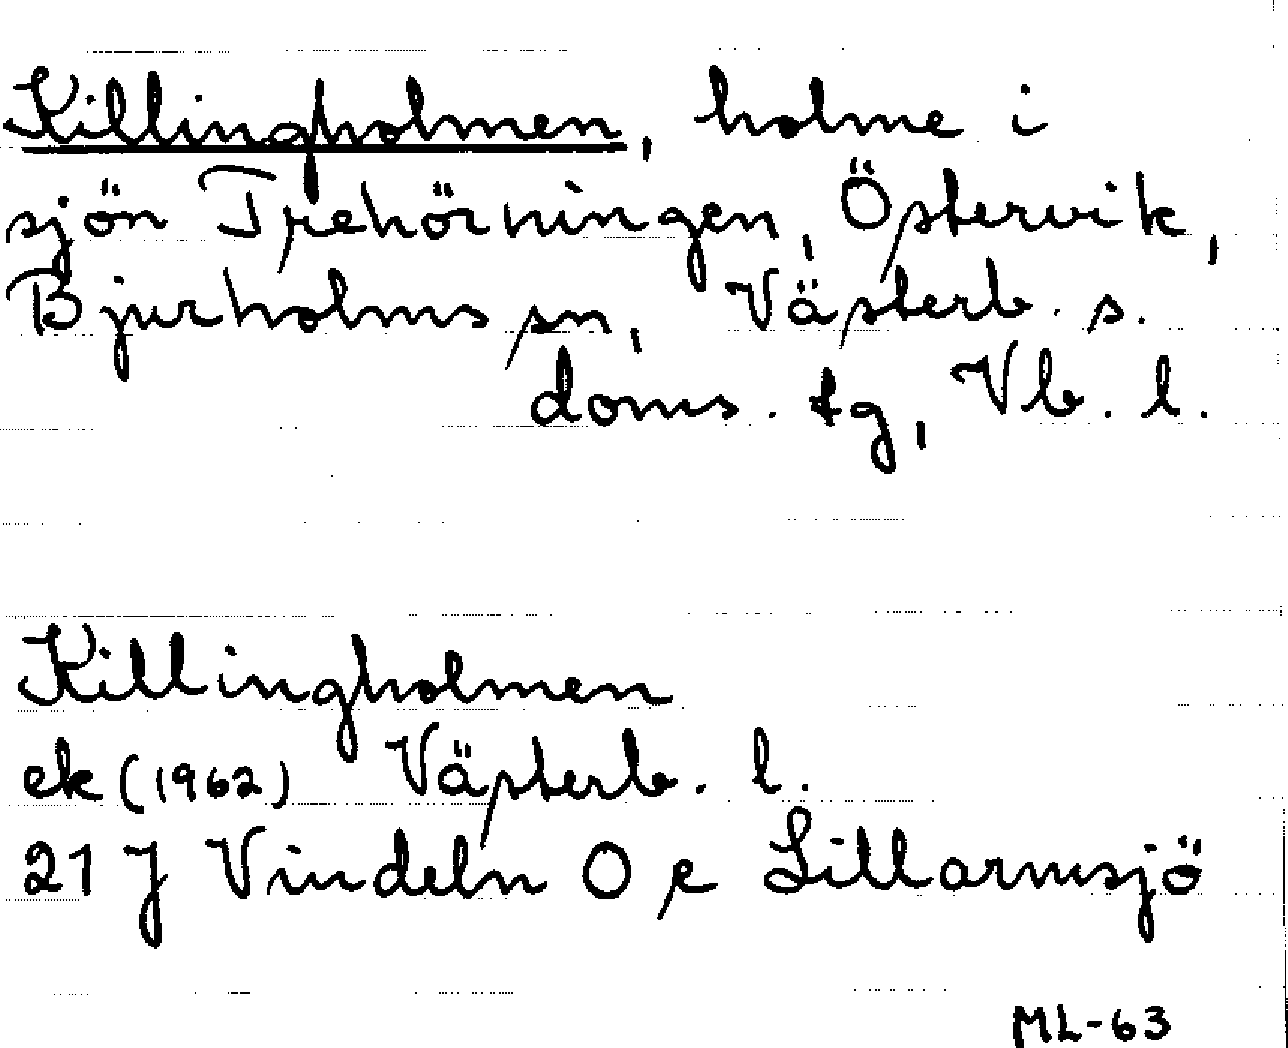 Killingholmen, holme i
sjön Trehörningen, Östervik,
Bjurholms sn, Västerb. s.
doms. tg, Vb. l.
Killingholmen
ek (1962) Västerb. l.
21 J Vindeln 0 e Lillarmsjö
ML-63